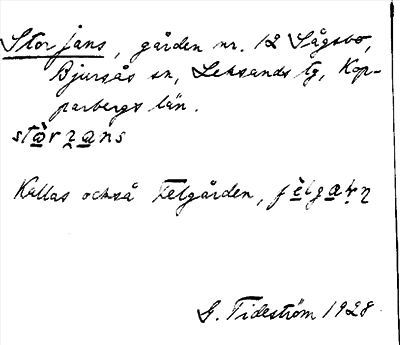 Storjans, gården nr. 12 Sågsbo,
Bjursås sn, Leksands tg, Kop-
parbergs län.
Kallas också Felgården,
G. Tideström 1928.